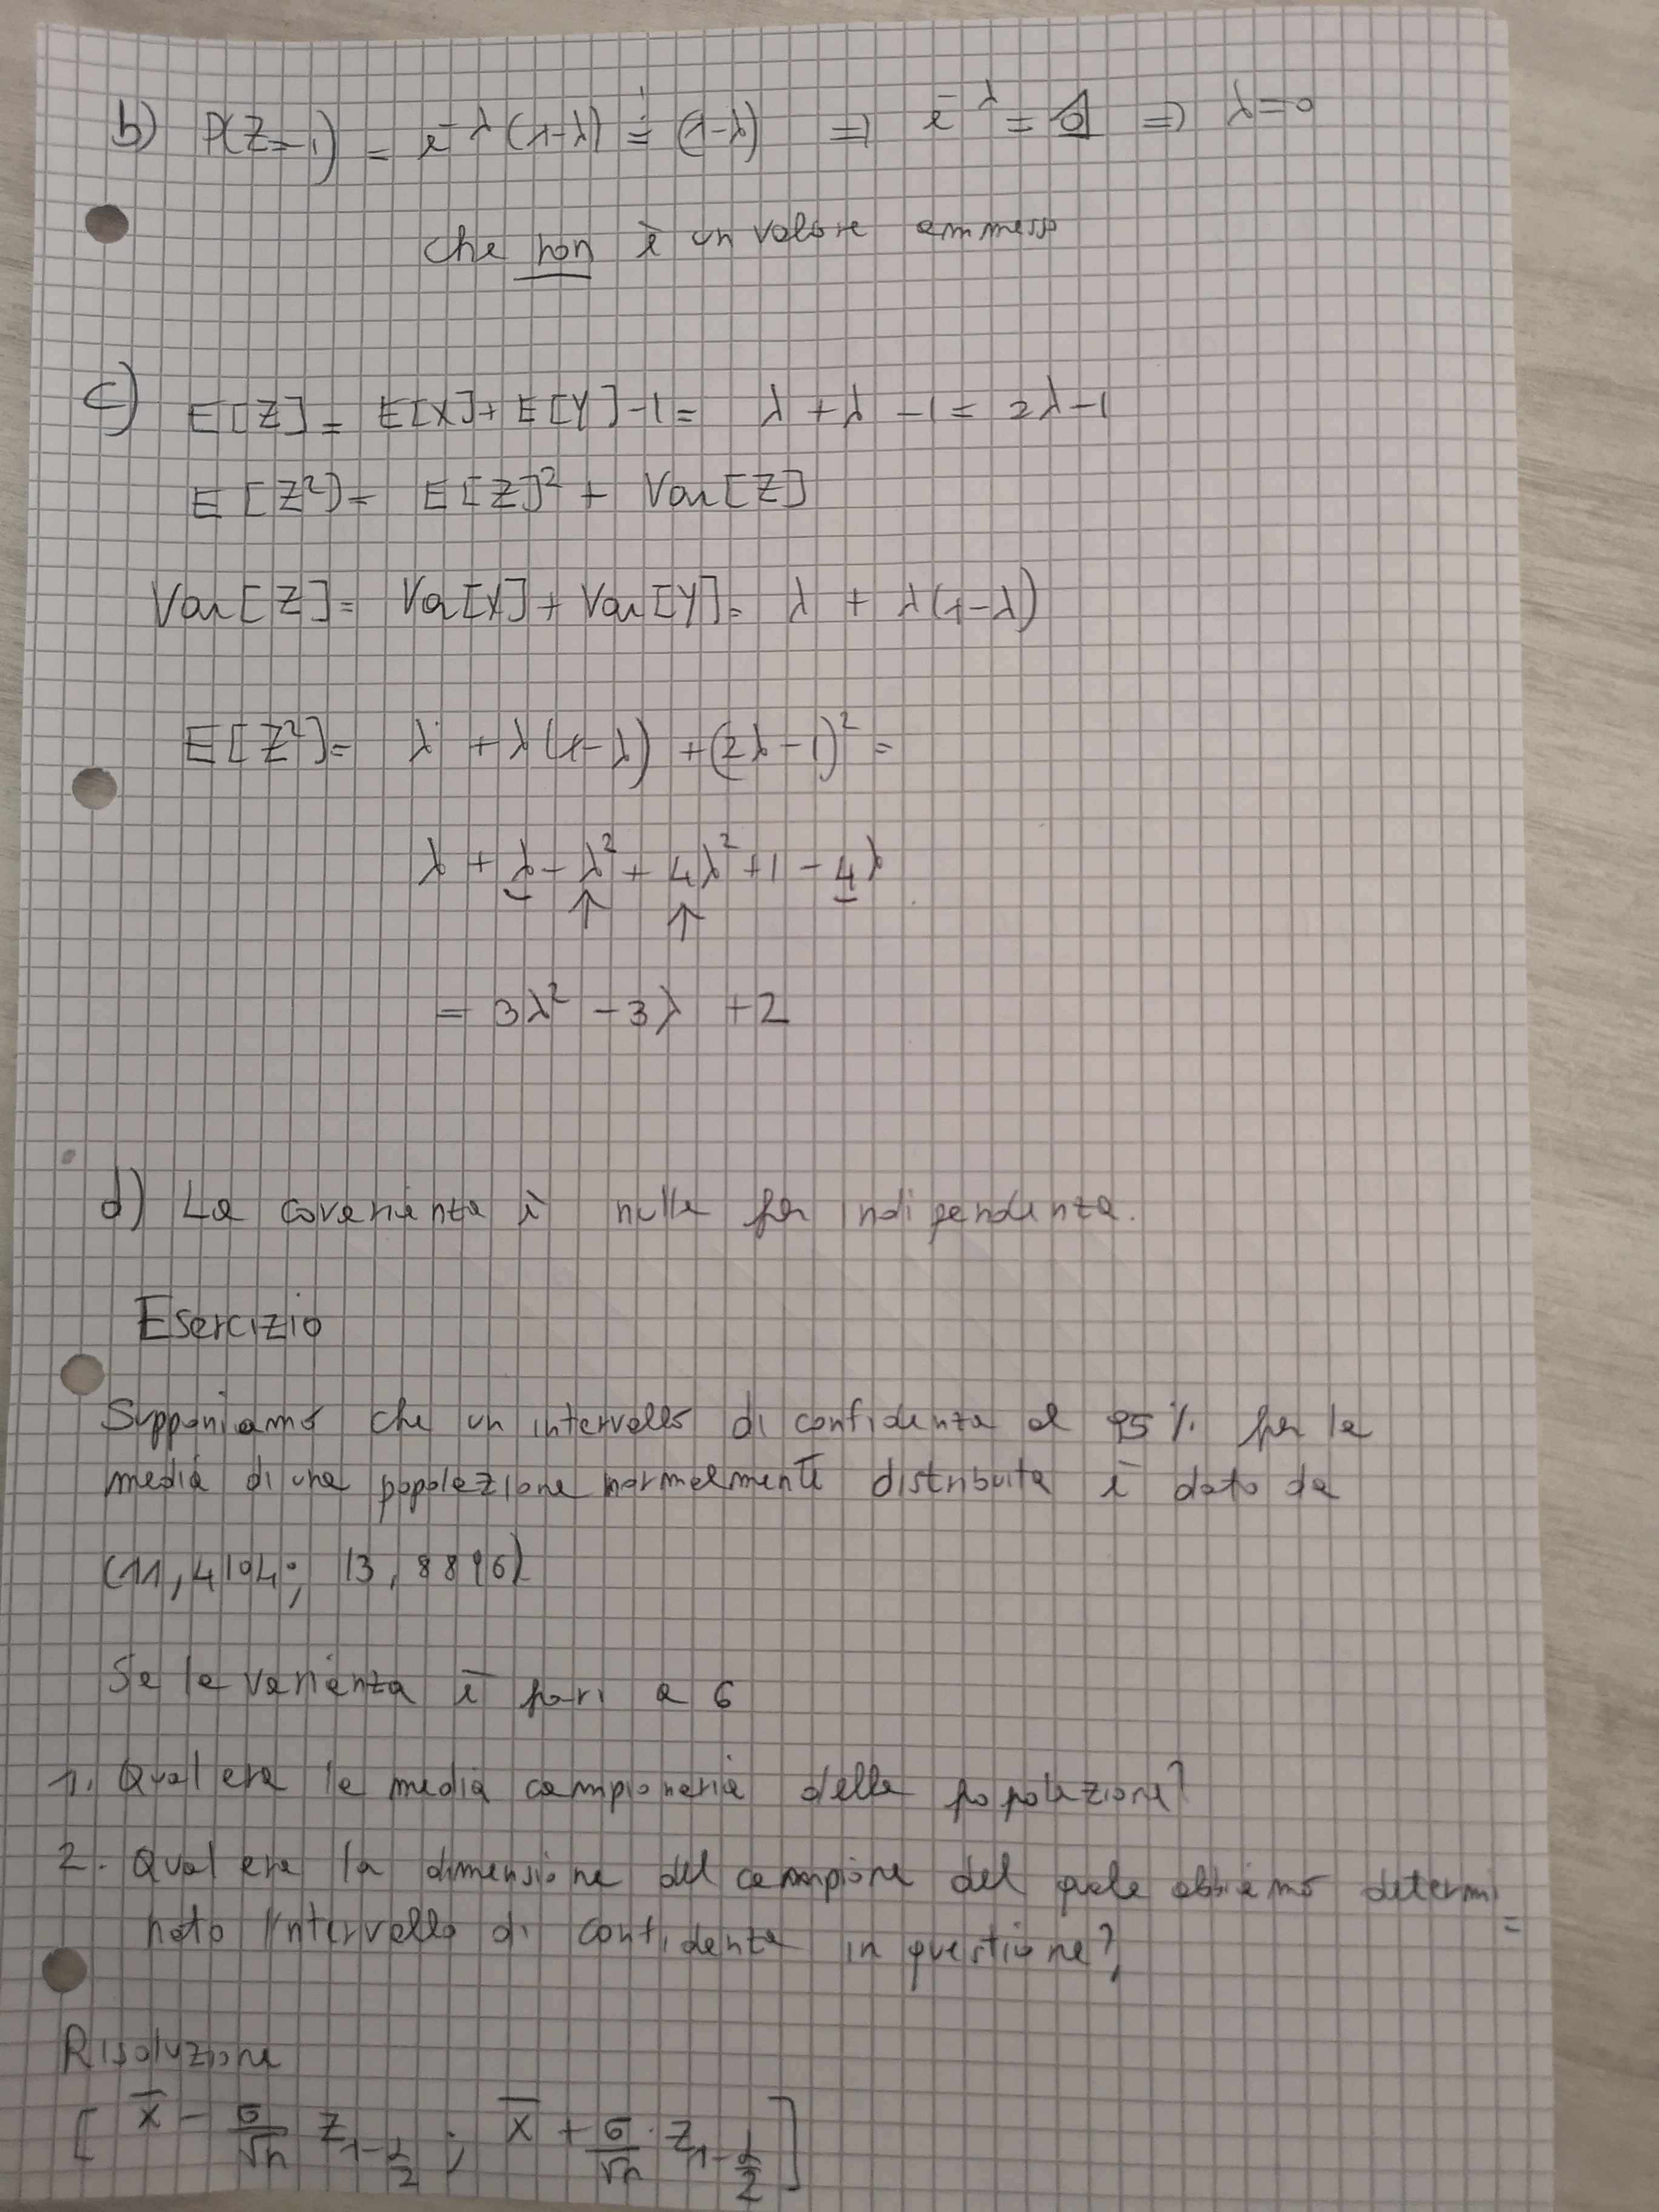 b) P(Z=-1) = e^-λ (1-λ) = (1-λ) => e^-λ = 1 => λ=0
che non è un valore ammesso
c) E[Z] = E[X]+E[Y]-1 = λ+λ-1 = 2λ-1
E[Z²] = E[Z]² + Var[Z]
Var[Z] = Var[X]+Var[Y] = λ + λ(1-λ)
E[Z²] = λ + λ(1-λ) + (2λ-1)² =
λ + λ - λ² + 4λ² + 1 - 4λ
↑ ↑
= 3λ² - 3λ + 2
d) La covarianza è nulla per indipendenza.
Esercizio
Supponiamo che un intervallo di confidenza al 95% per la
media di una popolazione normalmente distribuita è dato da
(11,4104; 13,8896)
Se la varianza è pari a 6
1. Qual era la media campionaria della popolazione?
2. Qual era la dimensione del campione del quale abbiamo determi=
nato l'intervallo di confidenza in questione?
Risoluzione
[ x̄ - σ/√n z_1-α/2 ; x̄ + σ/√n · z_1-α/2 ]